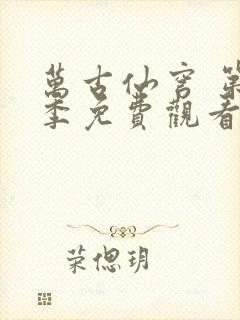 萬古仙穹 第
季免費觀看
荣偲玥